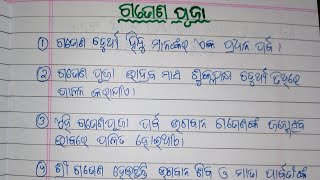 ଗଣେଶ ପୂଜା
① ଗଣେଶ ଚତୁର୍ଥୀ ହିନ୍ଦୁ ମାନଙ୍କର ଏକ ପ୍ରଧାନ ପର୍ବ ।
② ଗଣେଶ ପୂଜା ଭାଦ୍ରବ ମାସ ଶୁକ୍ଳପକ୍ଷ ଚତୁର୍ଥୀ ତିଥିରେ
ପାଳନ କରାଯାଏ ।
③ ଏହି ଗଣେଶପୂଜା ପର୍ବ ଭଗବାନ ଗଣେଶଙ୍କ ଜନ୍ମୋତ୍ସବ
ଭାବରେ ପାଳିତ ହୋଇଥାଏ ।
④ ଶ୍ରୀ ଗଣେଶ ହେଉଛନ୍ତି ଭଗବାନ ଶିବ ଓ ମାତା ପାର୍ବତୀଙ୍କ